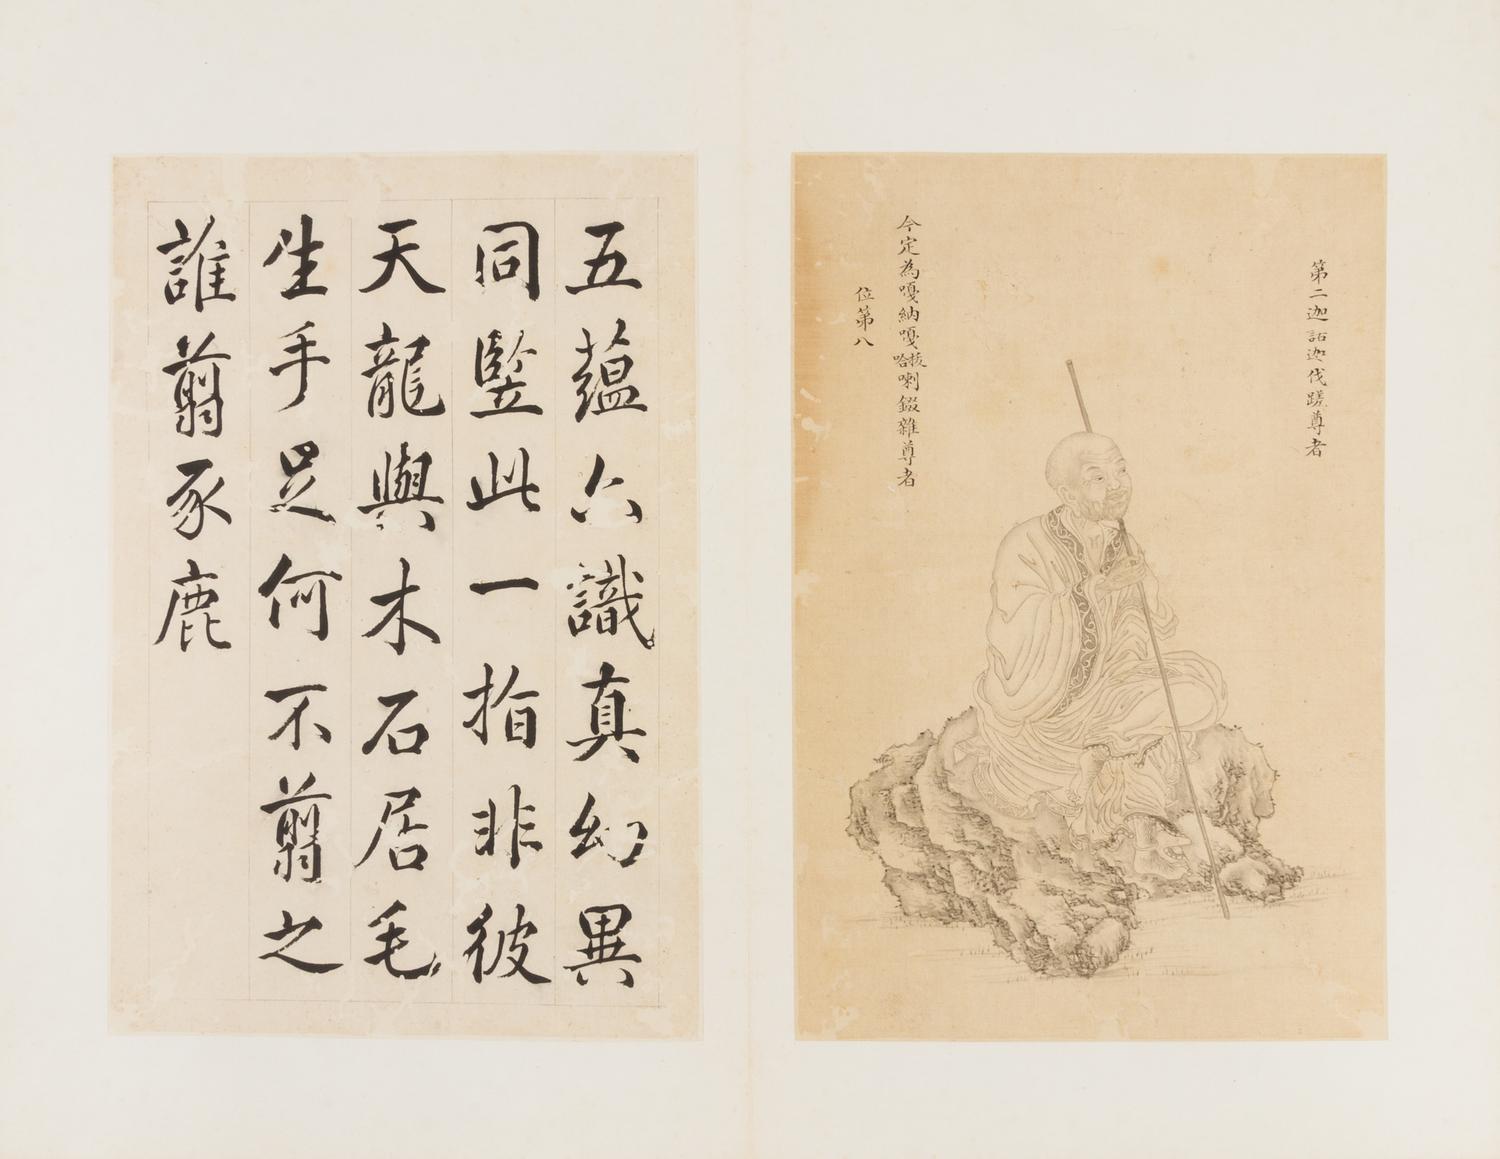 第二迦諾迦伐蹉尊者
今定為嘎納嘎拔哈喇錣雜尊者
位第八
五蘊六識真幻異
同豎此一指非彼
天龍與木石居毛
生手足何不翦之
誰翦豕鹿